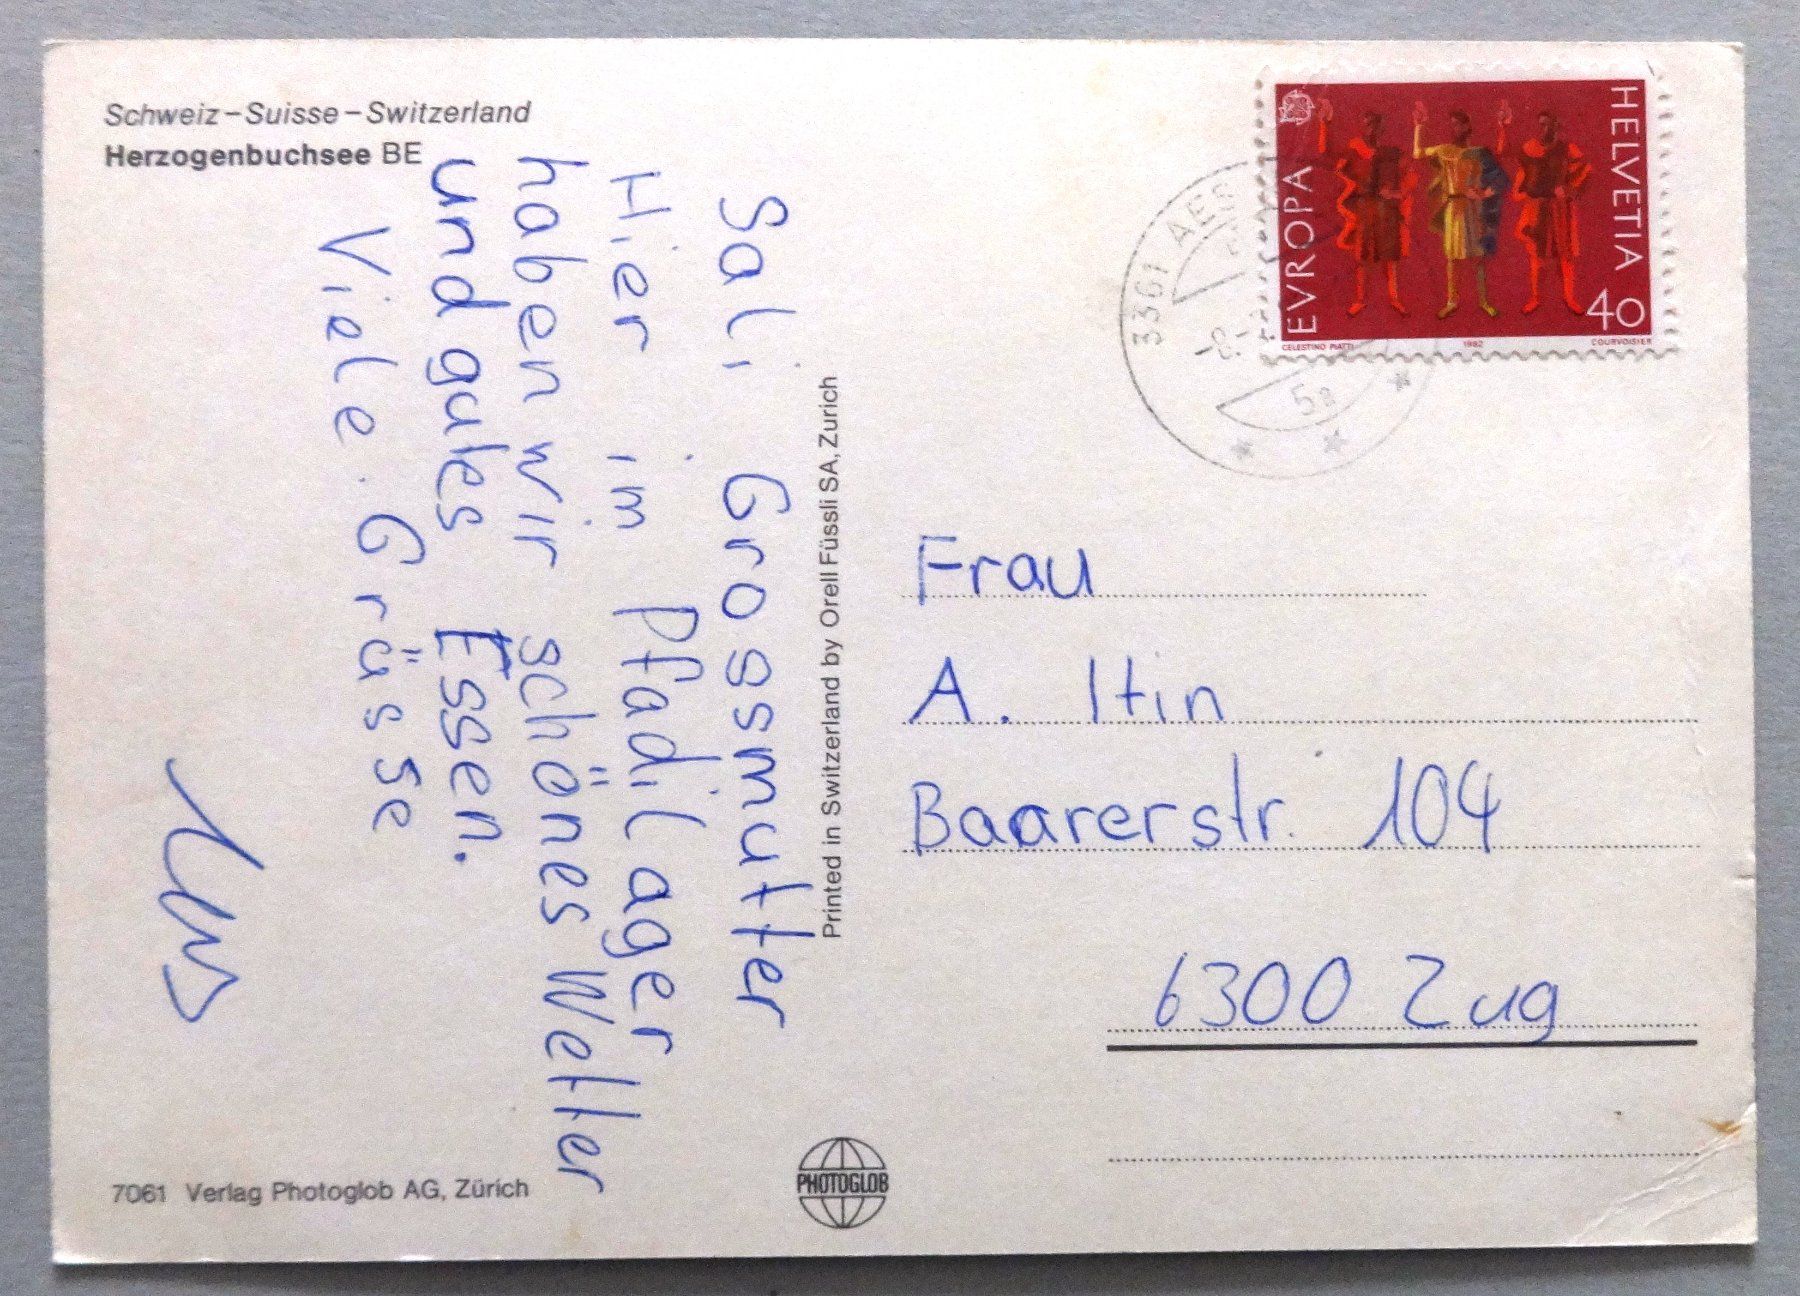 Schweiz – Suisse – Switzerland
Herzogenbuchsee BE
Sali Grossmutter
Hier im Pfadilager
haben wir schönes Wetter
und gutes Essen.
Viele Grüsse
7061 Verlag Photoglob AG, Zürich
Printed in Switzerland by Orell Füssli SA, Zurich
PHOTOGLOB
HELVETIA
EVROPA
40
CELESTINO PIATTI 1982 COURVOISIER
3361
5a
Frau
A. Itin
Baarerstr. 104
6300 Zug